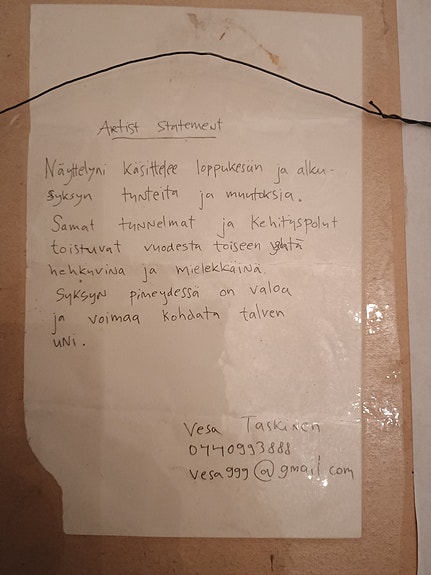 Artist Statement
Näyttelyni käsittelee loppukesän ja alku-
syksyn tunteita ja muutoksia.
Samat tunnelmat ja kehityspolut
toistuvat vuodesta toiseen yhtä
hehkuvina ja mielekkäinä.
Syksyn pimeydessä on valoa
ja voimaa kohdata talven
uni.
Vesa Taskinen
0440993888
vesa999@gmail.com